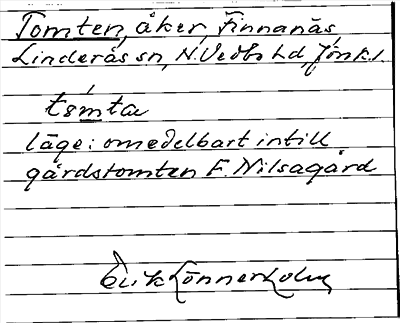 Tomten, åker, Finnanäs,
Linderås sn, N. Vedbo hd, Jönk. l.
tómta
läge: omedelbart intill
gårdstomten F. Nilsagård
Erik Lönnerholm